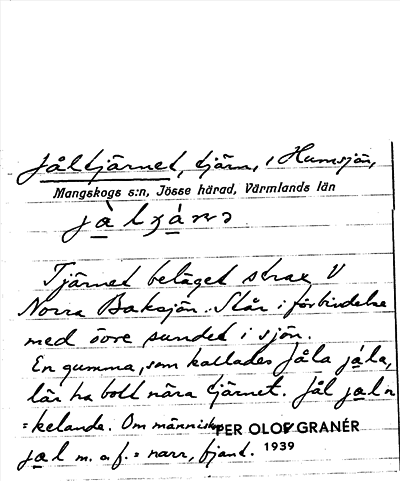 Jåltjärnet, tjärn, i Humsjön,
Mangskogs s:n, Jösse härad, Värmlands län
Tjärnet beläget strax V
Norra Baksjön. Står i förbindelse
med övre sundet i sjön.
En gumma, som kallades Jåla jala,
lär ha bott nära tjärnet. Jål jæln
= kelande. Om människor
PER OLOF GRANÉR
1939
jæl m. o. f. = narr, fjant.